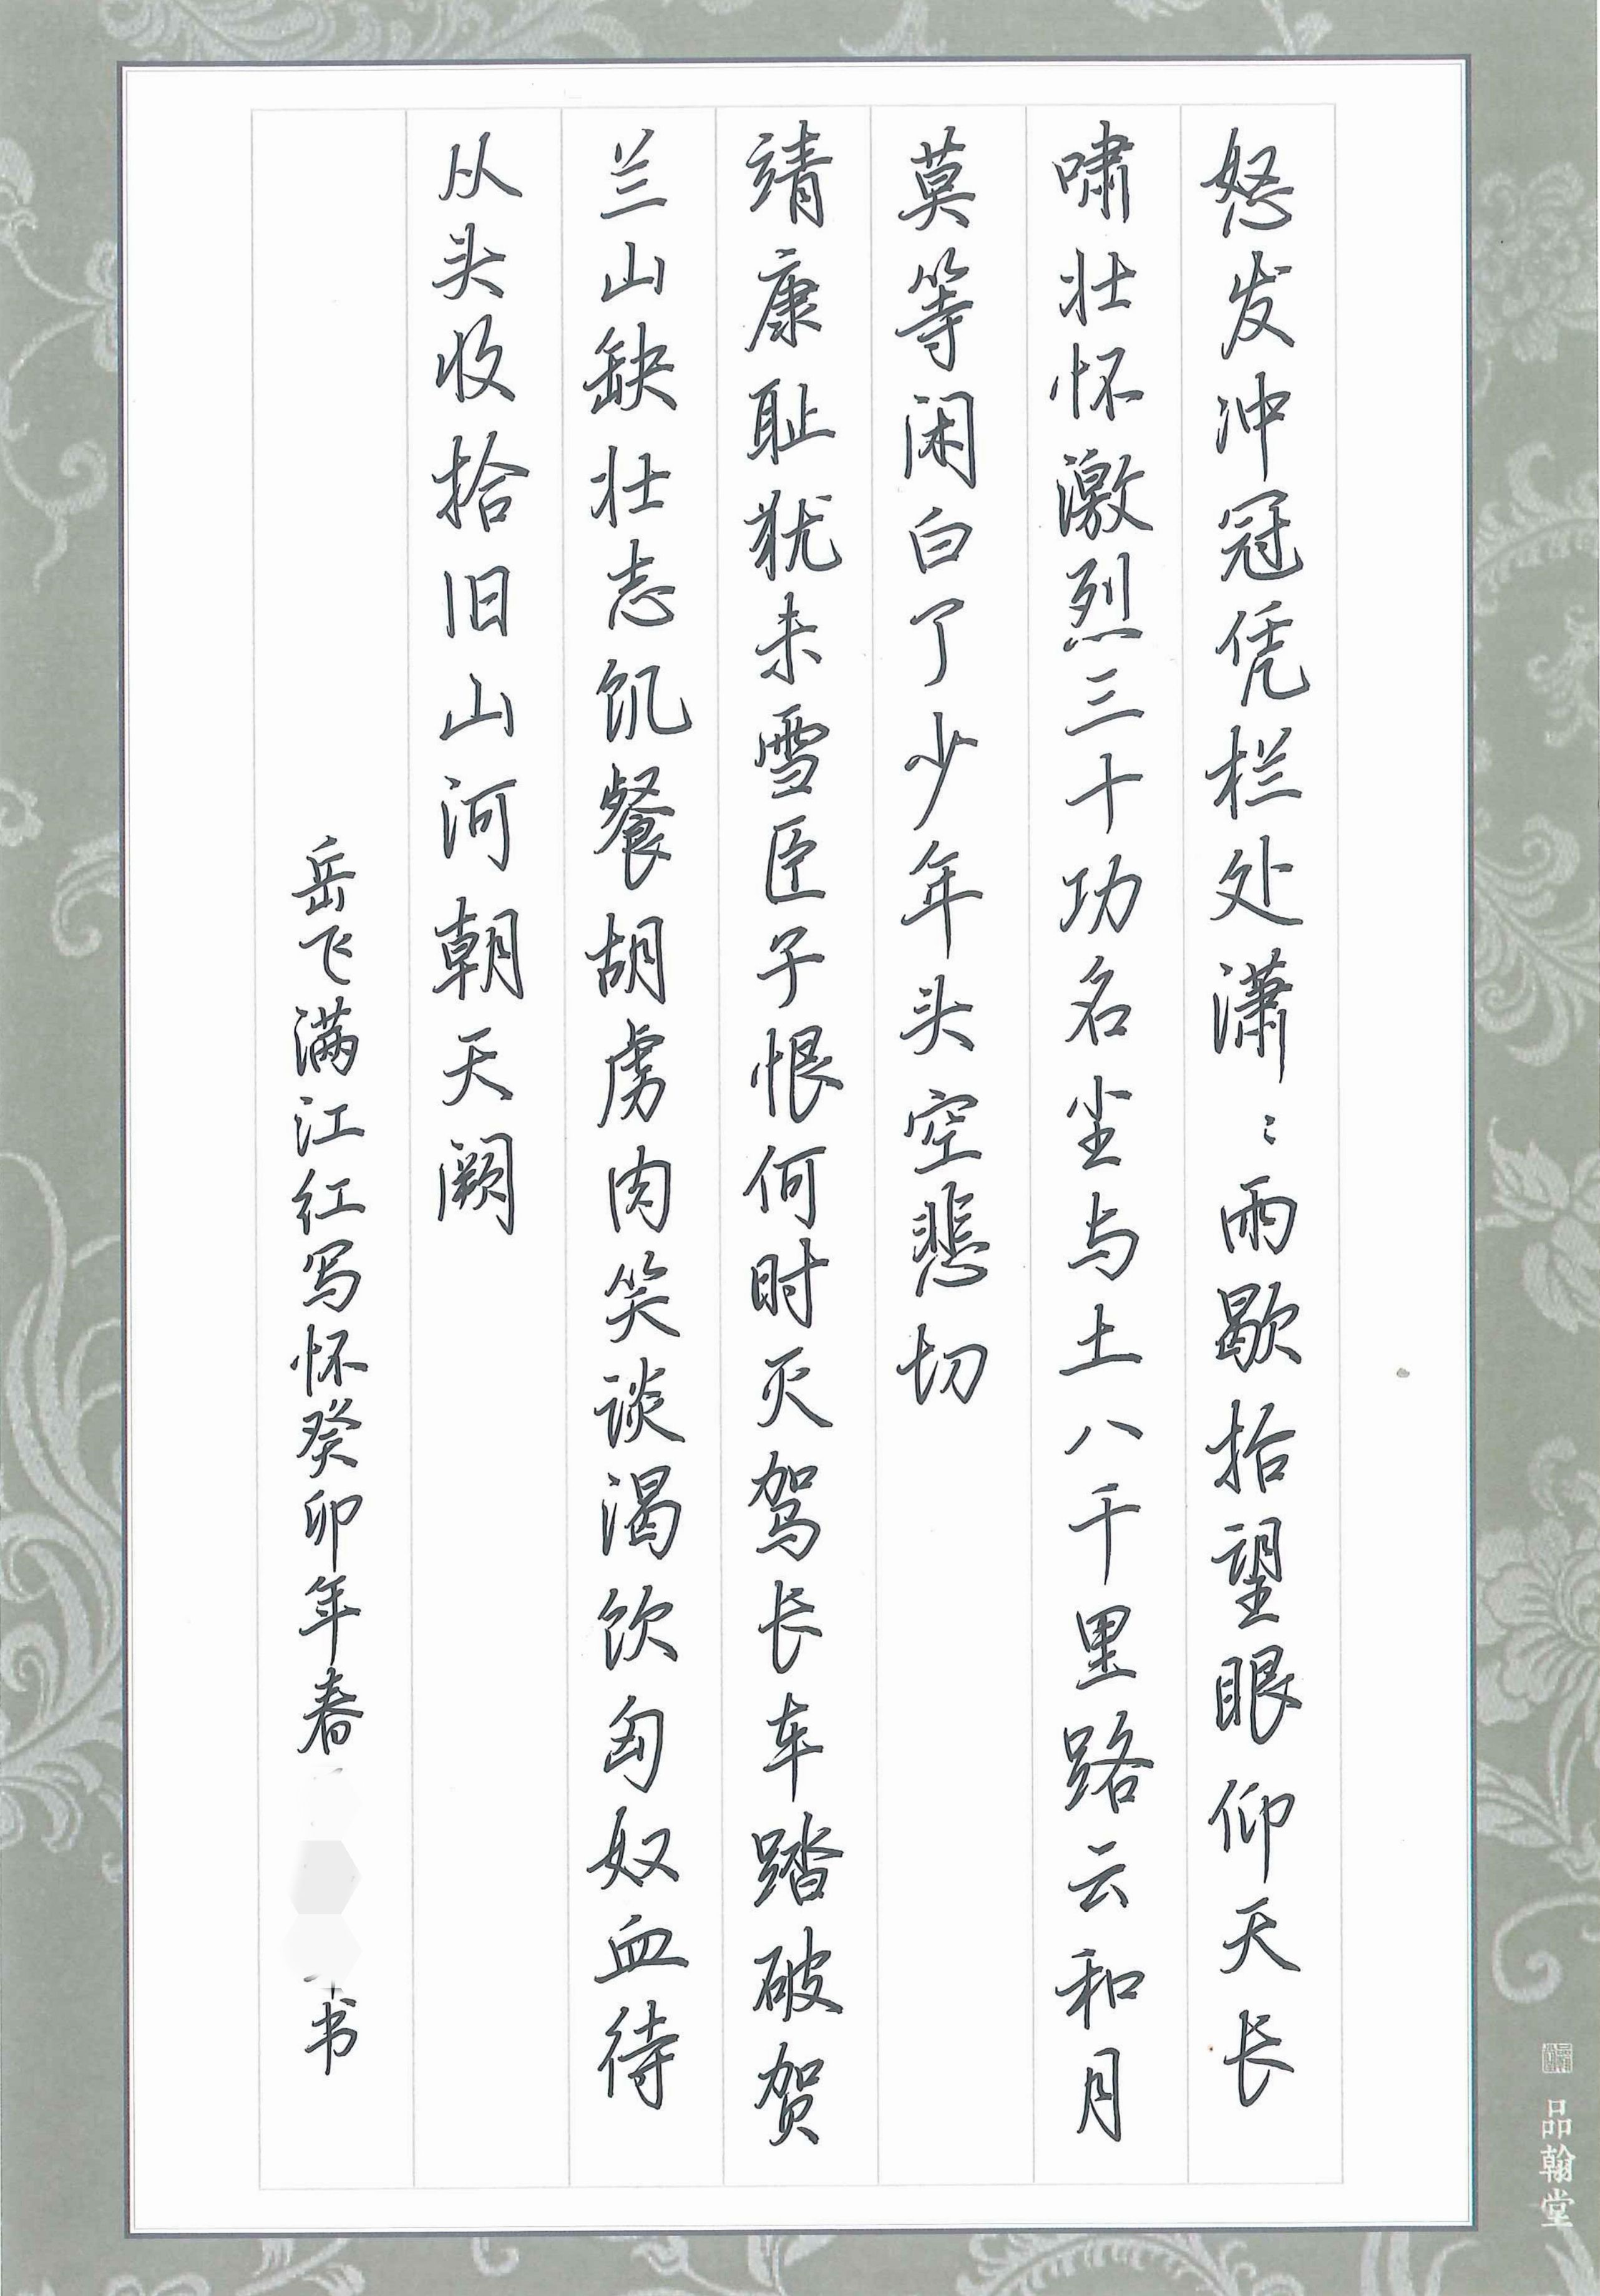 怒发冲冠凭栏处潇：雨歇抬望眼仰天长
啸壮怀激烈三十功名尘与土八千里路云和月
莫等闲白了少年头空悲切
靖康耻犹未雪臣子恨何时灭驾长车踏破贺
兰山缺壮志饥餐胡虏肉笑谈渴饮匈奴血待
从头收拾旧山河朝天阙
岳飞满江红写怀癸卯年春
书
品翰堂